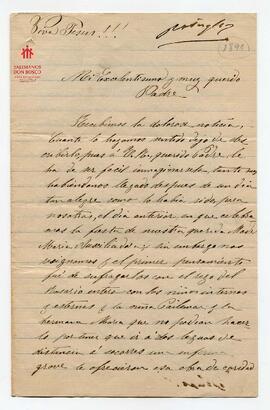 Viva Jesus!!!
(1891)
SALESIANOS
DON BOSCO
Mi Excelentisimo y muy querido
Padre
Recibimos la dolorosa noticia,
Cuanto lo hayamos sentido dejo de des
cribirlo, pues á V.R. querido Padre le
ha de ser facil imaginarselo, tanto mas
habiendonos llegado despues de un dia
tan alegre como lo habia sido para
nosotras, el dia anterior en que celebra
mos la fiesta de nuestra querida Madre
Maria Auxiliadora, sin embargo nos
resignamos y el primer pensamiento
fué de sufragarlos con el rezo del
Rosario entero con las niñas internas
y externas y la niña y su
hermana Maria que no podian hacer
lo por tener que ir á dos leguas de
distancia á socorrer un enfermo
grave le ofrecieron esa obra de caridad